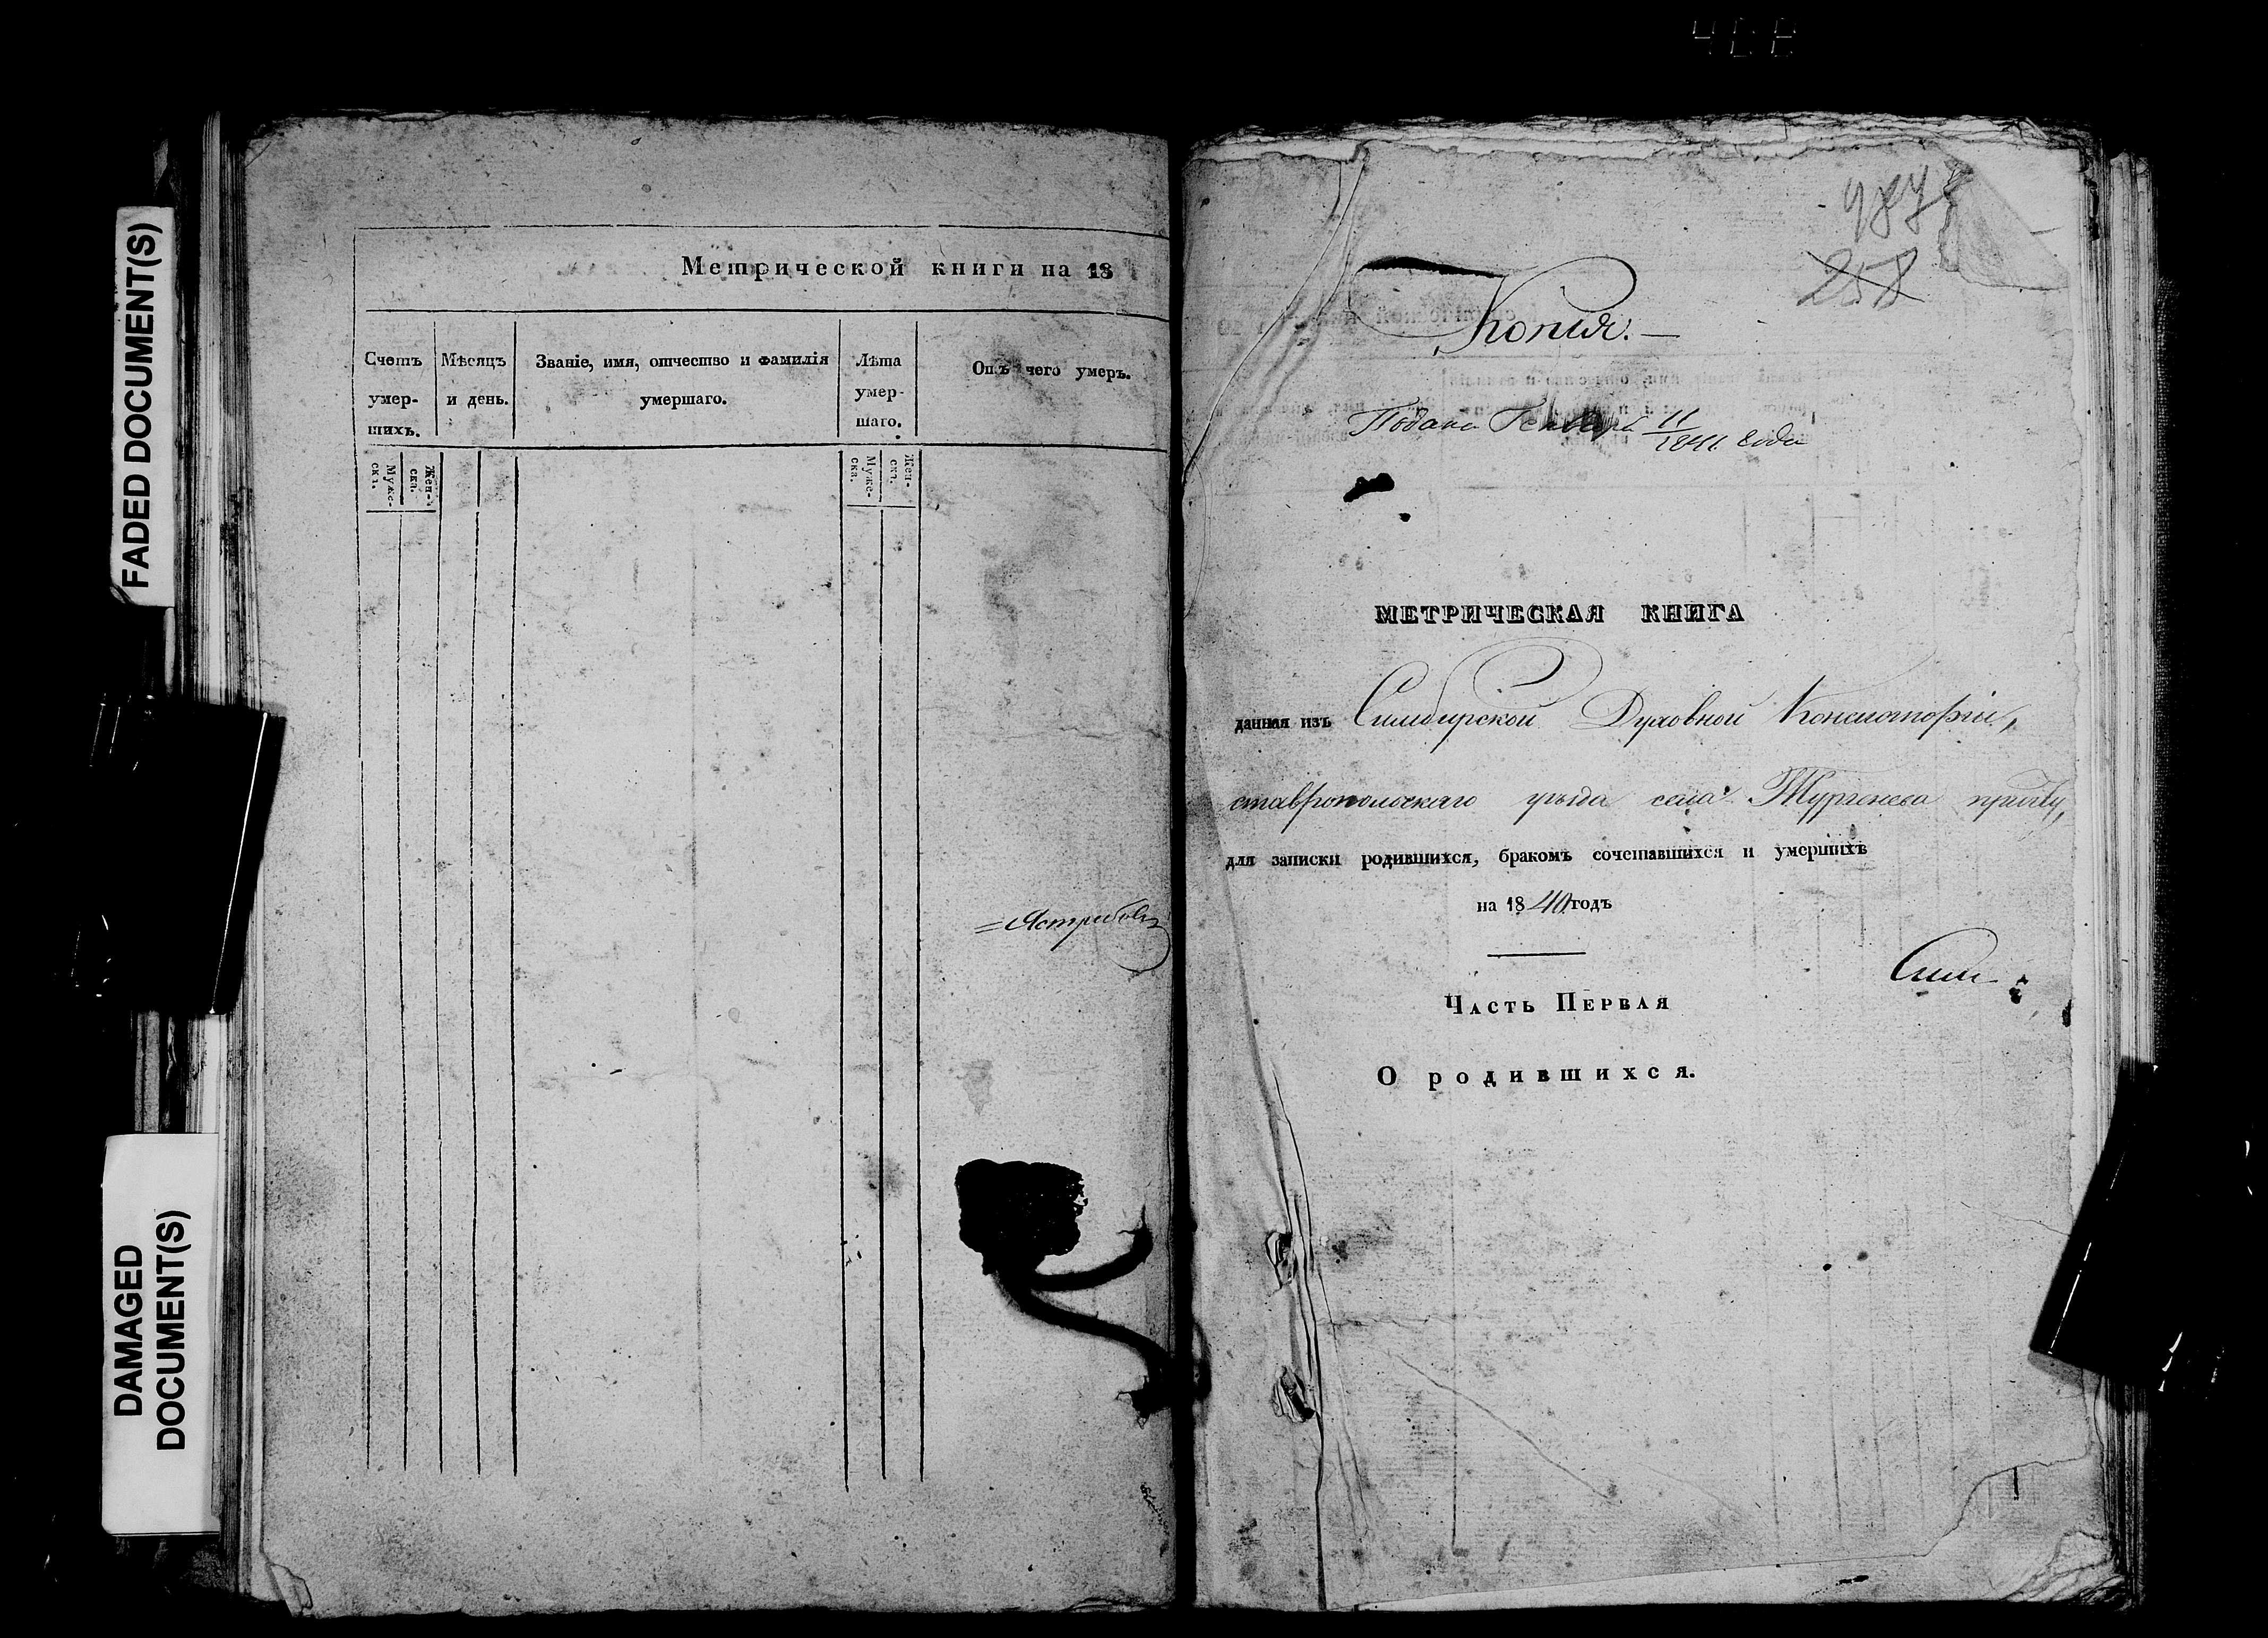 FADED DOCUMENT(S)
DAMAGED
DOCUMENT(S)
Метрической книги на 18
Счетъ
умер-
шихъ.
Мѣсяцъ
и день.
Званіе, имя, отчество и фамилія
умершаго.
Лѣта
умер-
шаго.
Отъ чего умеръ.
Муже-
ска.
Жен-
ска.
Муже-
ска.
Жен-
ска.
Копия.
Подана Генваря 11
1841 года
МЕТРИЧЕСКАЯ КНИГА
данная изъ Симбирской Духовной Консисторіи,
ставропольскаго уѣзда села Тургенева причту,
для записки родившихся, бракомъ сочетавшихся и умершихъ
на 1840 годъ
Часть Первая
О родившихся.
258